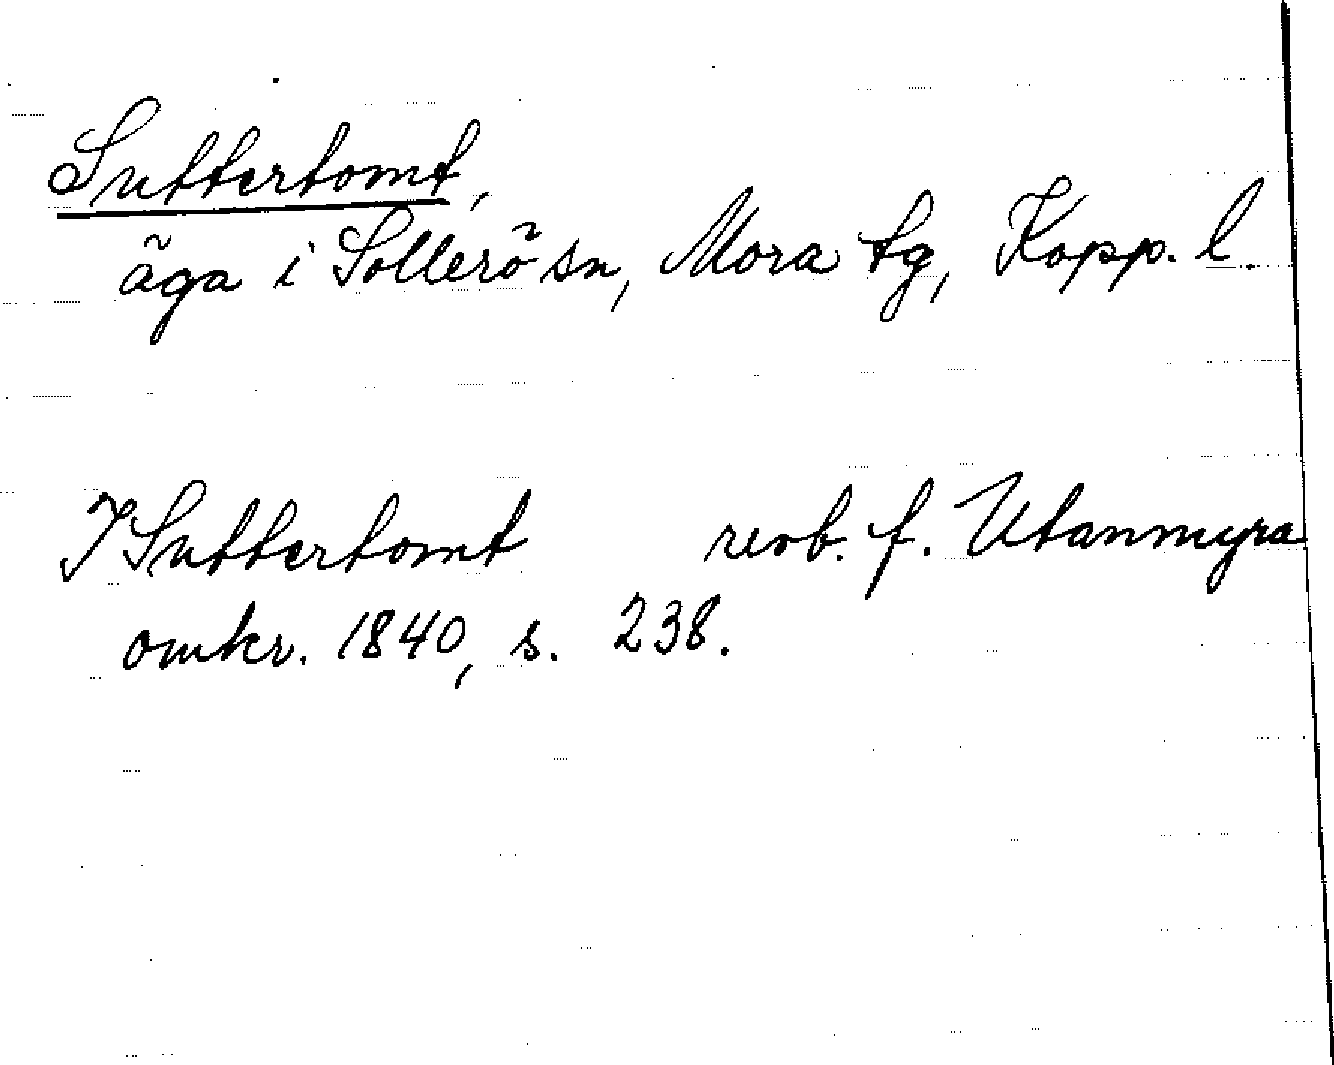 Suttertomt,
äga i Sollerö sn, Mora tg, Kopp. l.
I Suttertomt revb. f. Utanmyra
omkr. 1840, s. 238.